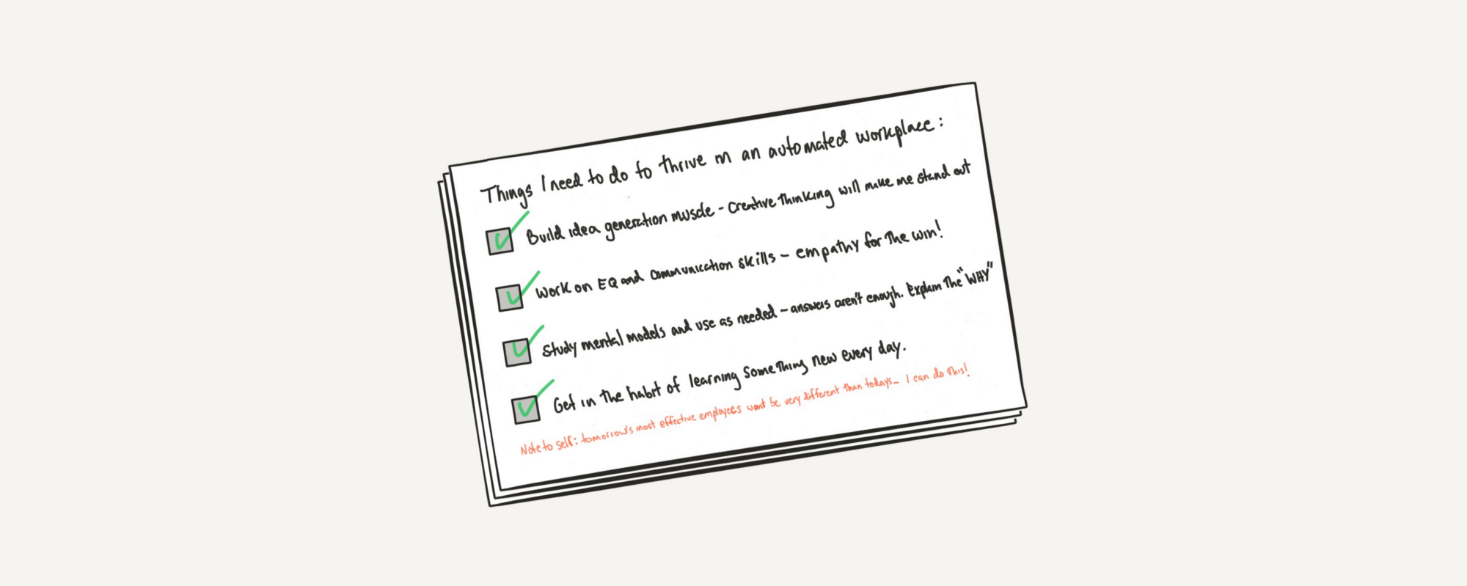 Things I need to do to thrive in an automated workplace:
Build idea generation muscle - Creative Thinking will make me stand out
Work on EQ and communication skills - empathy for The win!
Study mental models and use as needed - answers aren't enough. Explain The "WHY"
Get in The habit of learning something new every day.
Note to self: tomorrow's most effective employees wont be very different Than todays... I can do This!